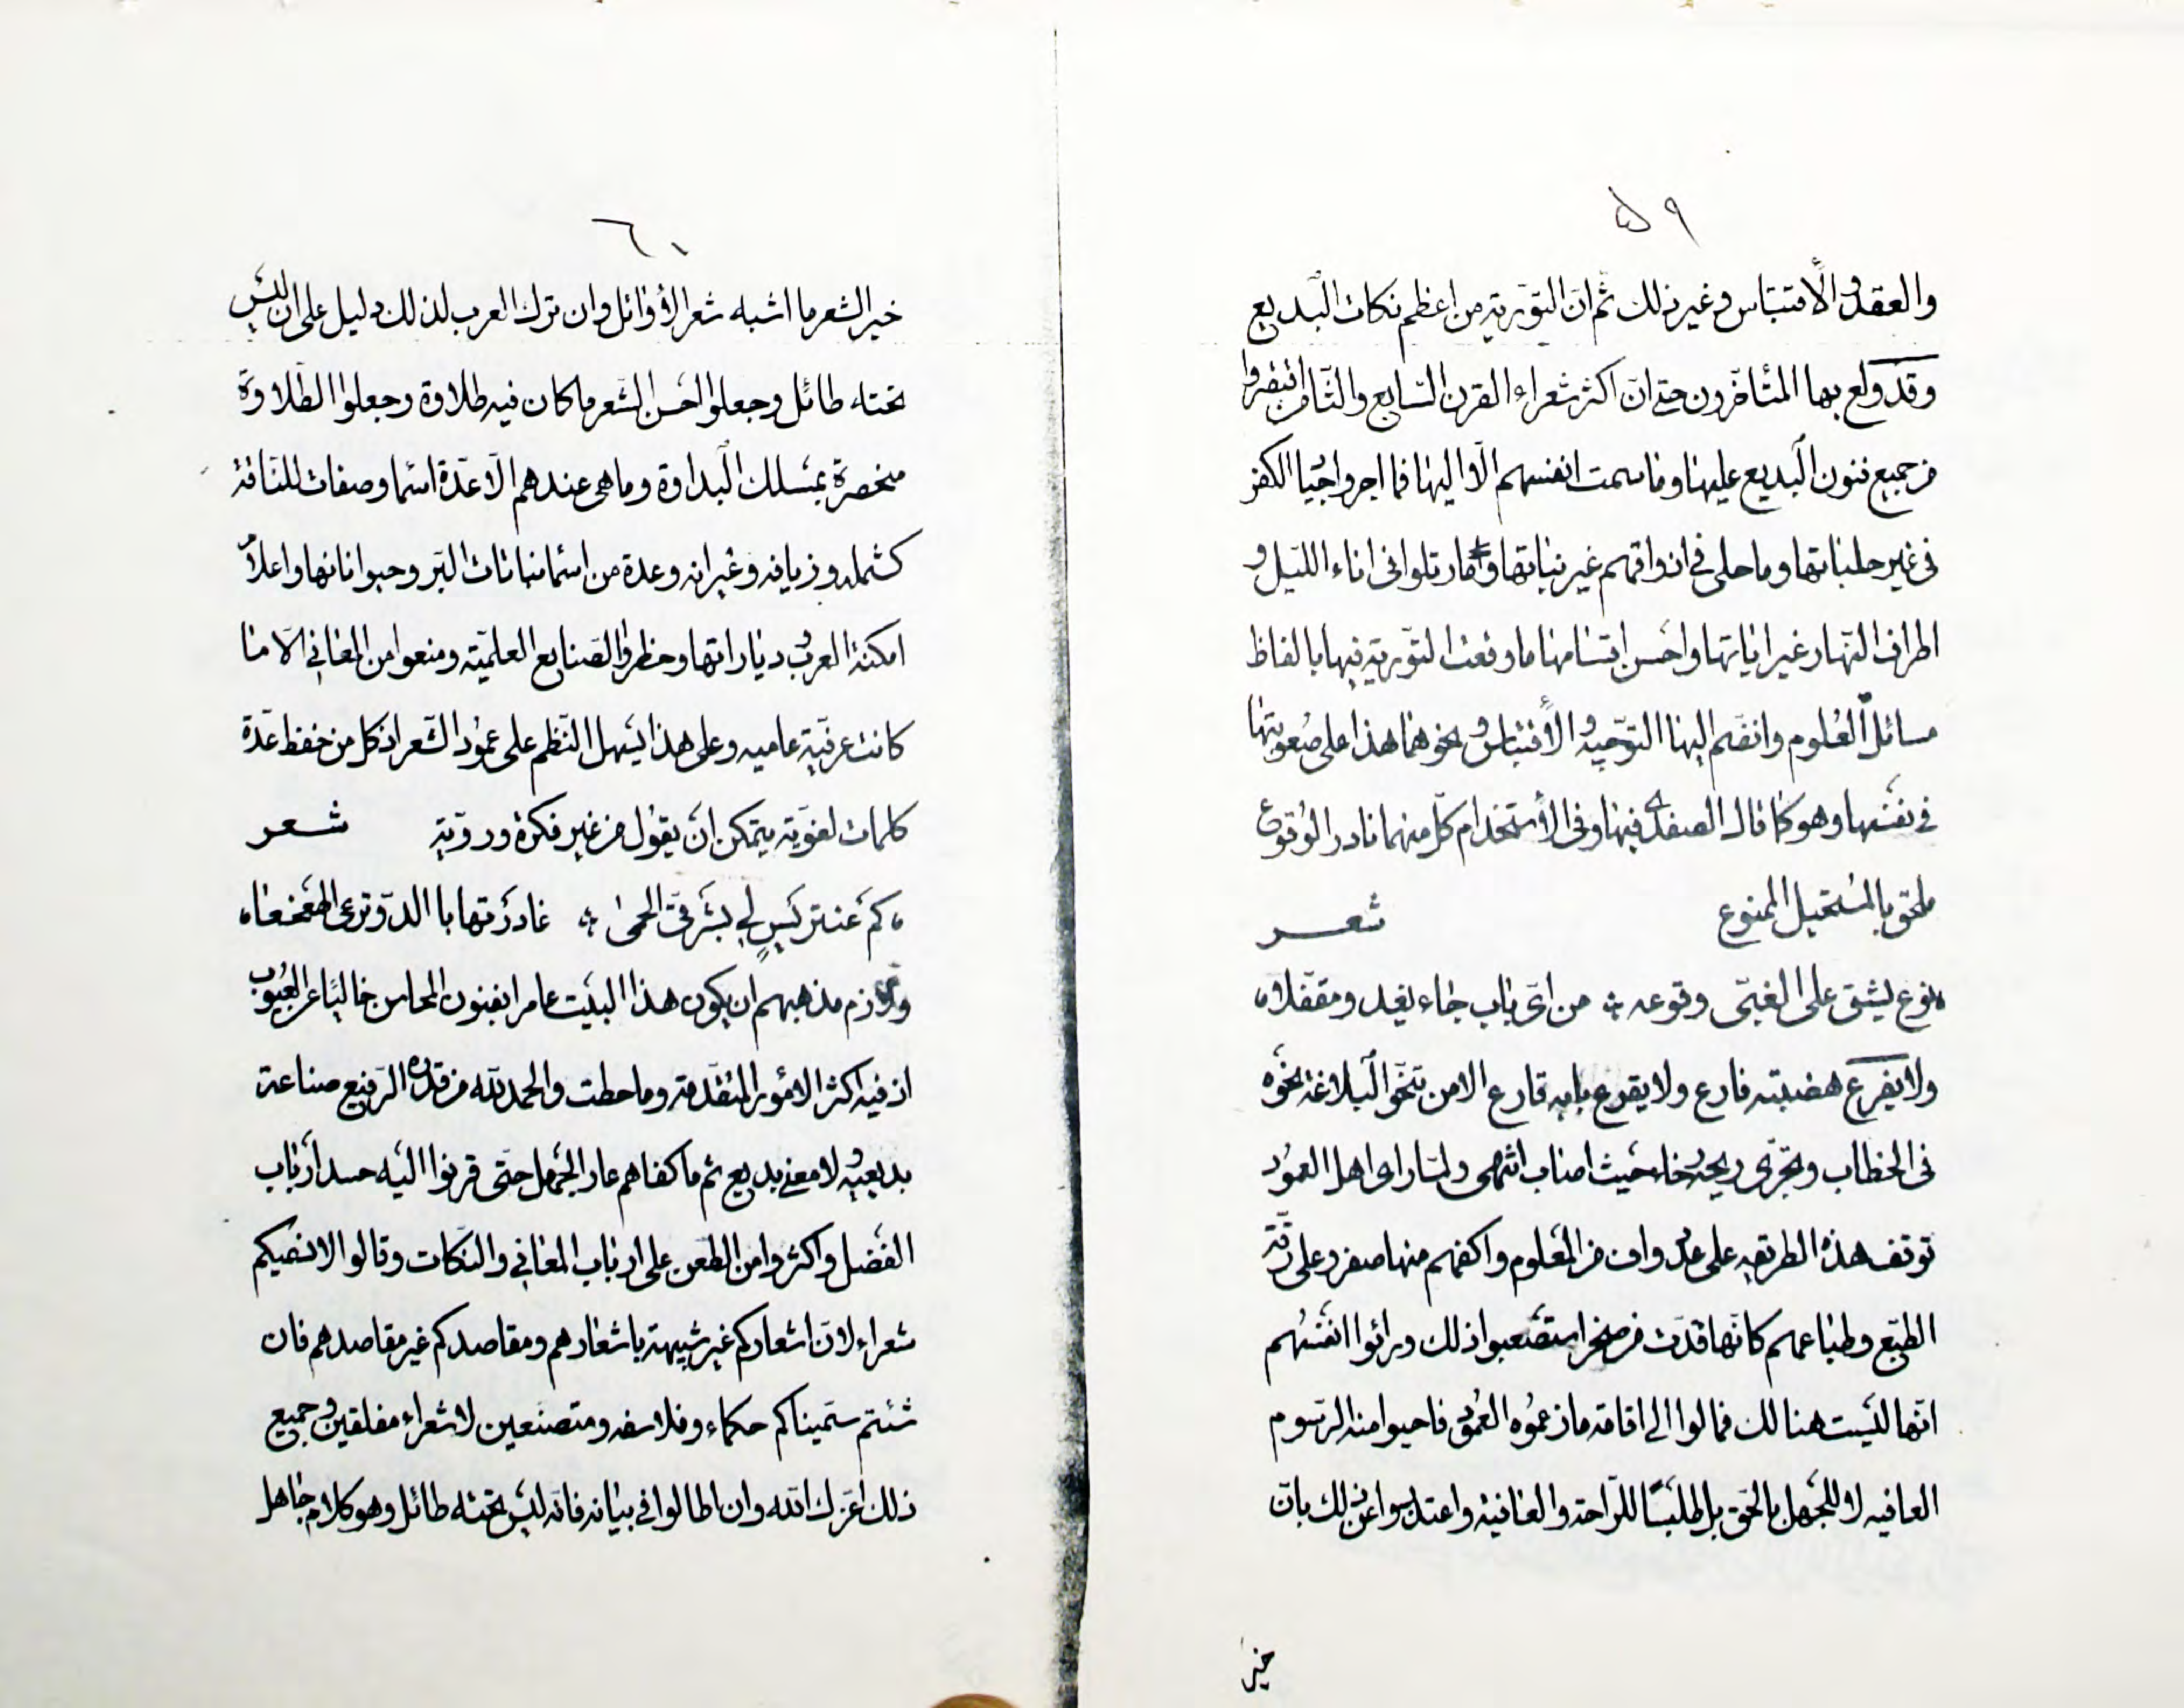 ٥٩
والعقد والاقتباس وغير ذلك ثم ان التورية من اعظم نكات البديع
وقد ولع بها المتأخرون حتى ان اكثر شعراء القرن السابع والثامن اقتصروا
من جميع فنون البديع عليها وما سمت انفسهم الا اليها فما اجروا جياد الكفر
فى غير حلباتها وما حلى فى اذواقهم غير نباتها وما رتلوا فى اناء الليل و
اطراف النهار غير اياتها واحسن اقسامها ما وقعت التورية فيها بالفاظ
مسائل العلوم وانضم اليها التوجيه والاقتباس ونحوهما هذا على صعوبتها
فى نفسها وهو كما قال الصفدى فيها وفى الاستخدام كل منهما نادر الوقوع
ملحق بالمستحيل الممنوع شعر
نوع يشق على الغبى وقوعه من اى باب جاء يغد ومقفلا
ولا يفرع هضبته فارع ولا يقرع بابه قارع الا من تنحو البلاغة نحوه
فى الخطاب وتجرى ريحه رخاء حيث اصاب انتهى ولما راى اهل العمود
توقف هذه الطريقه على واف من العلوم واكفهم منها صفر وعلى رقة
الطبع وطباعهم كانها قدت من صخر استصعبوا ذلك ورائوا انفسهم
انها ليست هنالك فمالوا الى اقامة ما زعموه العمود فاحيوا منه الرسوم
العافيه لا للجهل بالحق بل طلبا للراحة والعافية واعتذروا عن ذلك بان
خير
٦٠
خير الشعر ما اشبه شعر الاوائل وان ترك العرب لذلك دليل على ان ليس
تحته طائل وجعلوا احسن الشعر ما كان فيه طلاوة وجعلوا الطلاوة
منحصرة بمسلك البداوة وما هى عندهم الا عدة اسما وصفات للناقة
كشملة وزيافه وعيرانه وعدة من اسما نباتات البر وحيواناتها واعلام
امكنة العرب ودياراتها وحظروا الصنايع العلمية ومنعوا من المعانى الا ما
كانت عرفية عاميه وعلى هذا يسهل النظم على عمود الشعر اذ كل من حفظ عدة
كلمات لغوية يتمكن ان يقول من غير فكرة وروية شعر
كم عنتريس لى بشرقى الحمى غادرتها بالدو ترعى الهعخعا
ولازم مذهبهم ان يكون هذا البيت عامرا بفنون المحاسن خاليا عن العيوب
اذ فيه اكثر الامور المتقدمة وما حطت والحمد لله من قدره الرفيع صناعة
بديعيه ولا معنى بديع ثم ما كفاهم عار الجهل حتى قرنوا اليه حسد ارباب
الفضل واكثروا من الطعن على ارباب المعانى والنكات وقالوا لا نسميكم
شعراء لان اشعاركم غير شبيهة باشعارهم ومقاصدكم غير مقاصدهم فان
شئتم سميناكم حكماء وفلاسفه ومتصنعين لا شعراء مفلقين وجميع
ذلك اعزك الله وان اطالوا فى بيانه فانه ليس تحته طائل وهو كلام جاهل